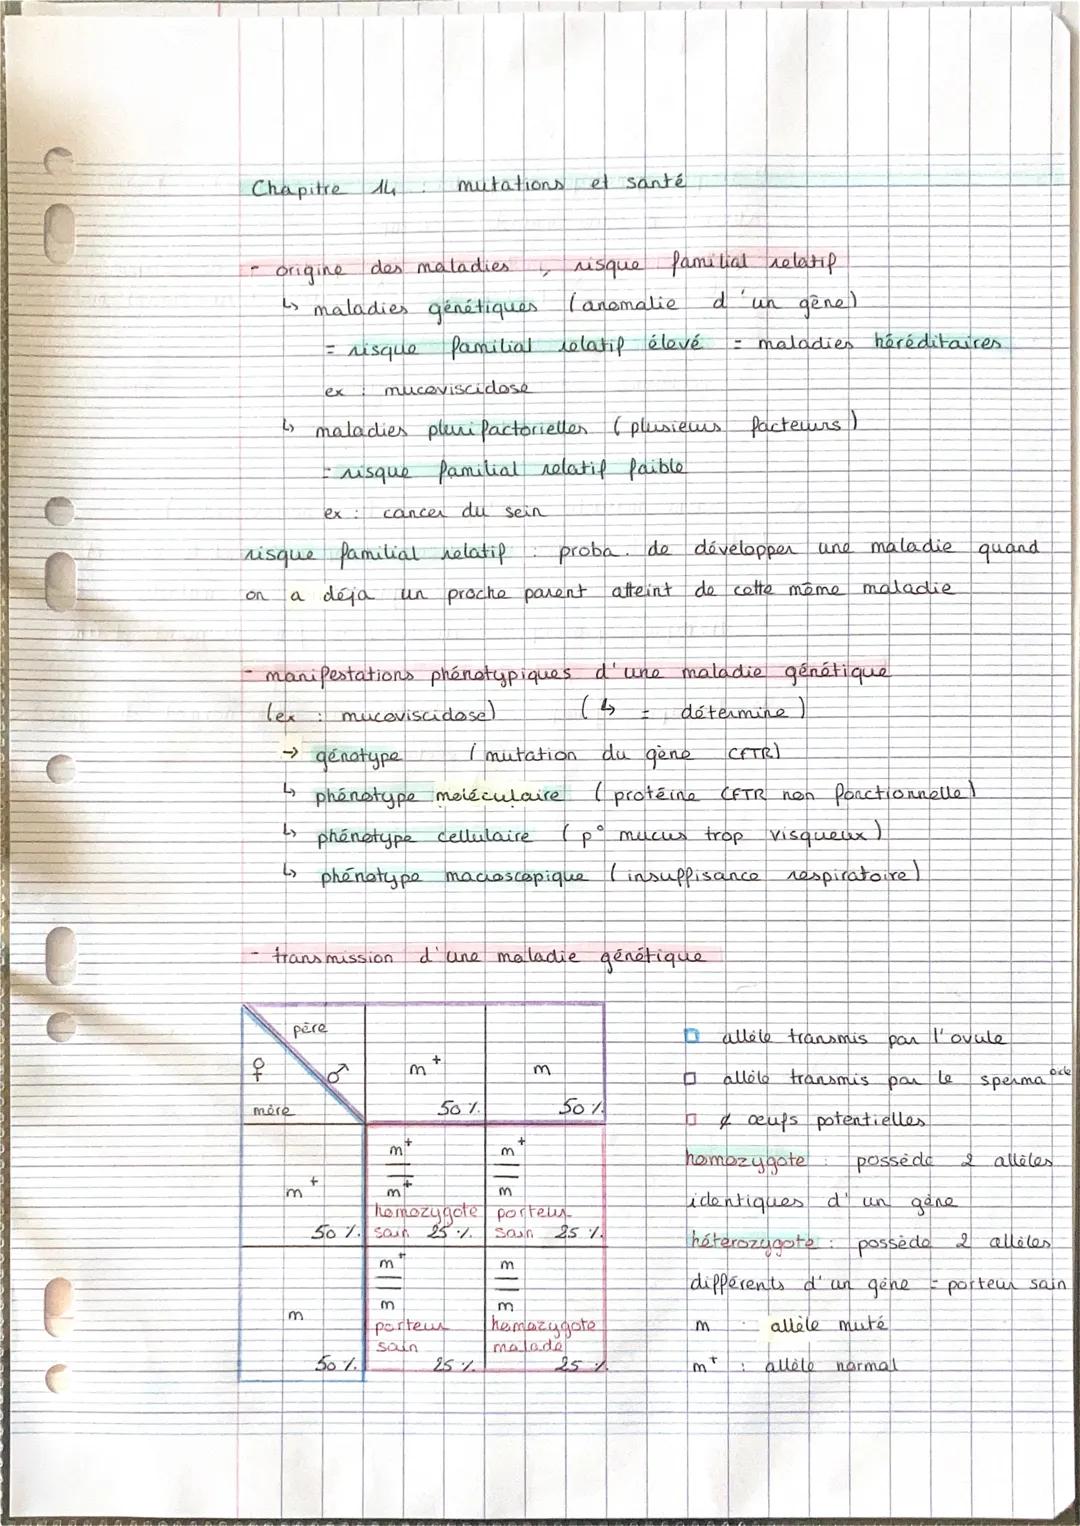 Chapitre 14 : mutations et santé
- origine des maladies, risque familial relatif
↳ maladies génétiques (anomalie d'un gène)
= risque familial relatif élevé = maladies héréditaires
ex : mucoviscidose
↳ maladies plurifactorielles (plusieurs facteurs)
= risque familial relatif faible
ex : cancer du sein
risque familial relatif : proba. de développer une maladie quand
on a déja un proche parent atteint de cette même maladie
- manifestations phénotypiques d'une maladie génétique
(ex : mucoviscidose) (↳ = détermine)
→ génotype (mutation du gène CFTR)
↳ phénotype moléculaire (protéine CFTR non fonctionnelle)
↳ phénotype cellulaire (p° mucus trop visqueux)
↳ phénotype macroscopique (insuffisance respiratoire)
- transmission d'une maladie génétique
père
♀ ♂
mère
m+
50 %
m
50 %
m+
50 %
m+
m+
homozygote
sain 25 %
m+
m
porteur
sain 25 %
m
50 %
m+
m
porteur
sain
25 %
m
m
homozygote
malade
25 %
allèle transmis par l'ovule
allèle transmis par le spermatozoïde
≠ œufs potentielles
homozygote : possède 2 allèles
identiques d'un gène
hétérozygote : possède 2 allèles
différents d'un gène = porteur sain
m : allèle muté
m+ : allèle normal